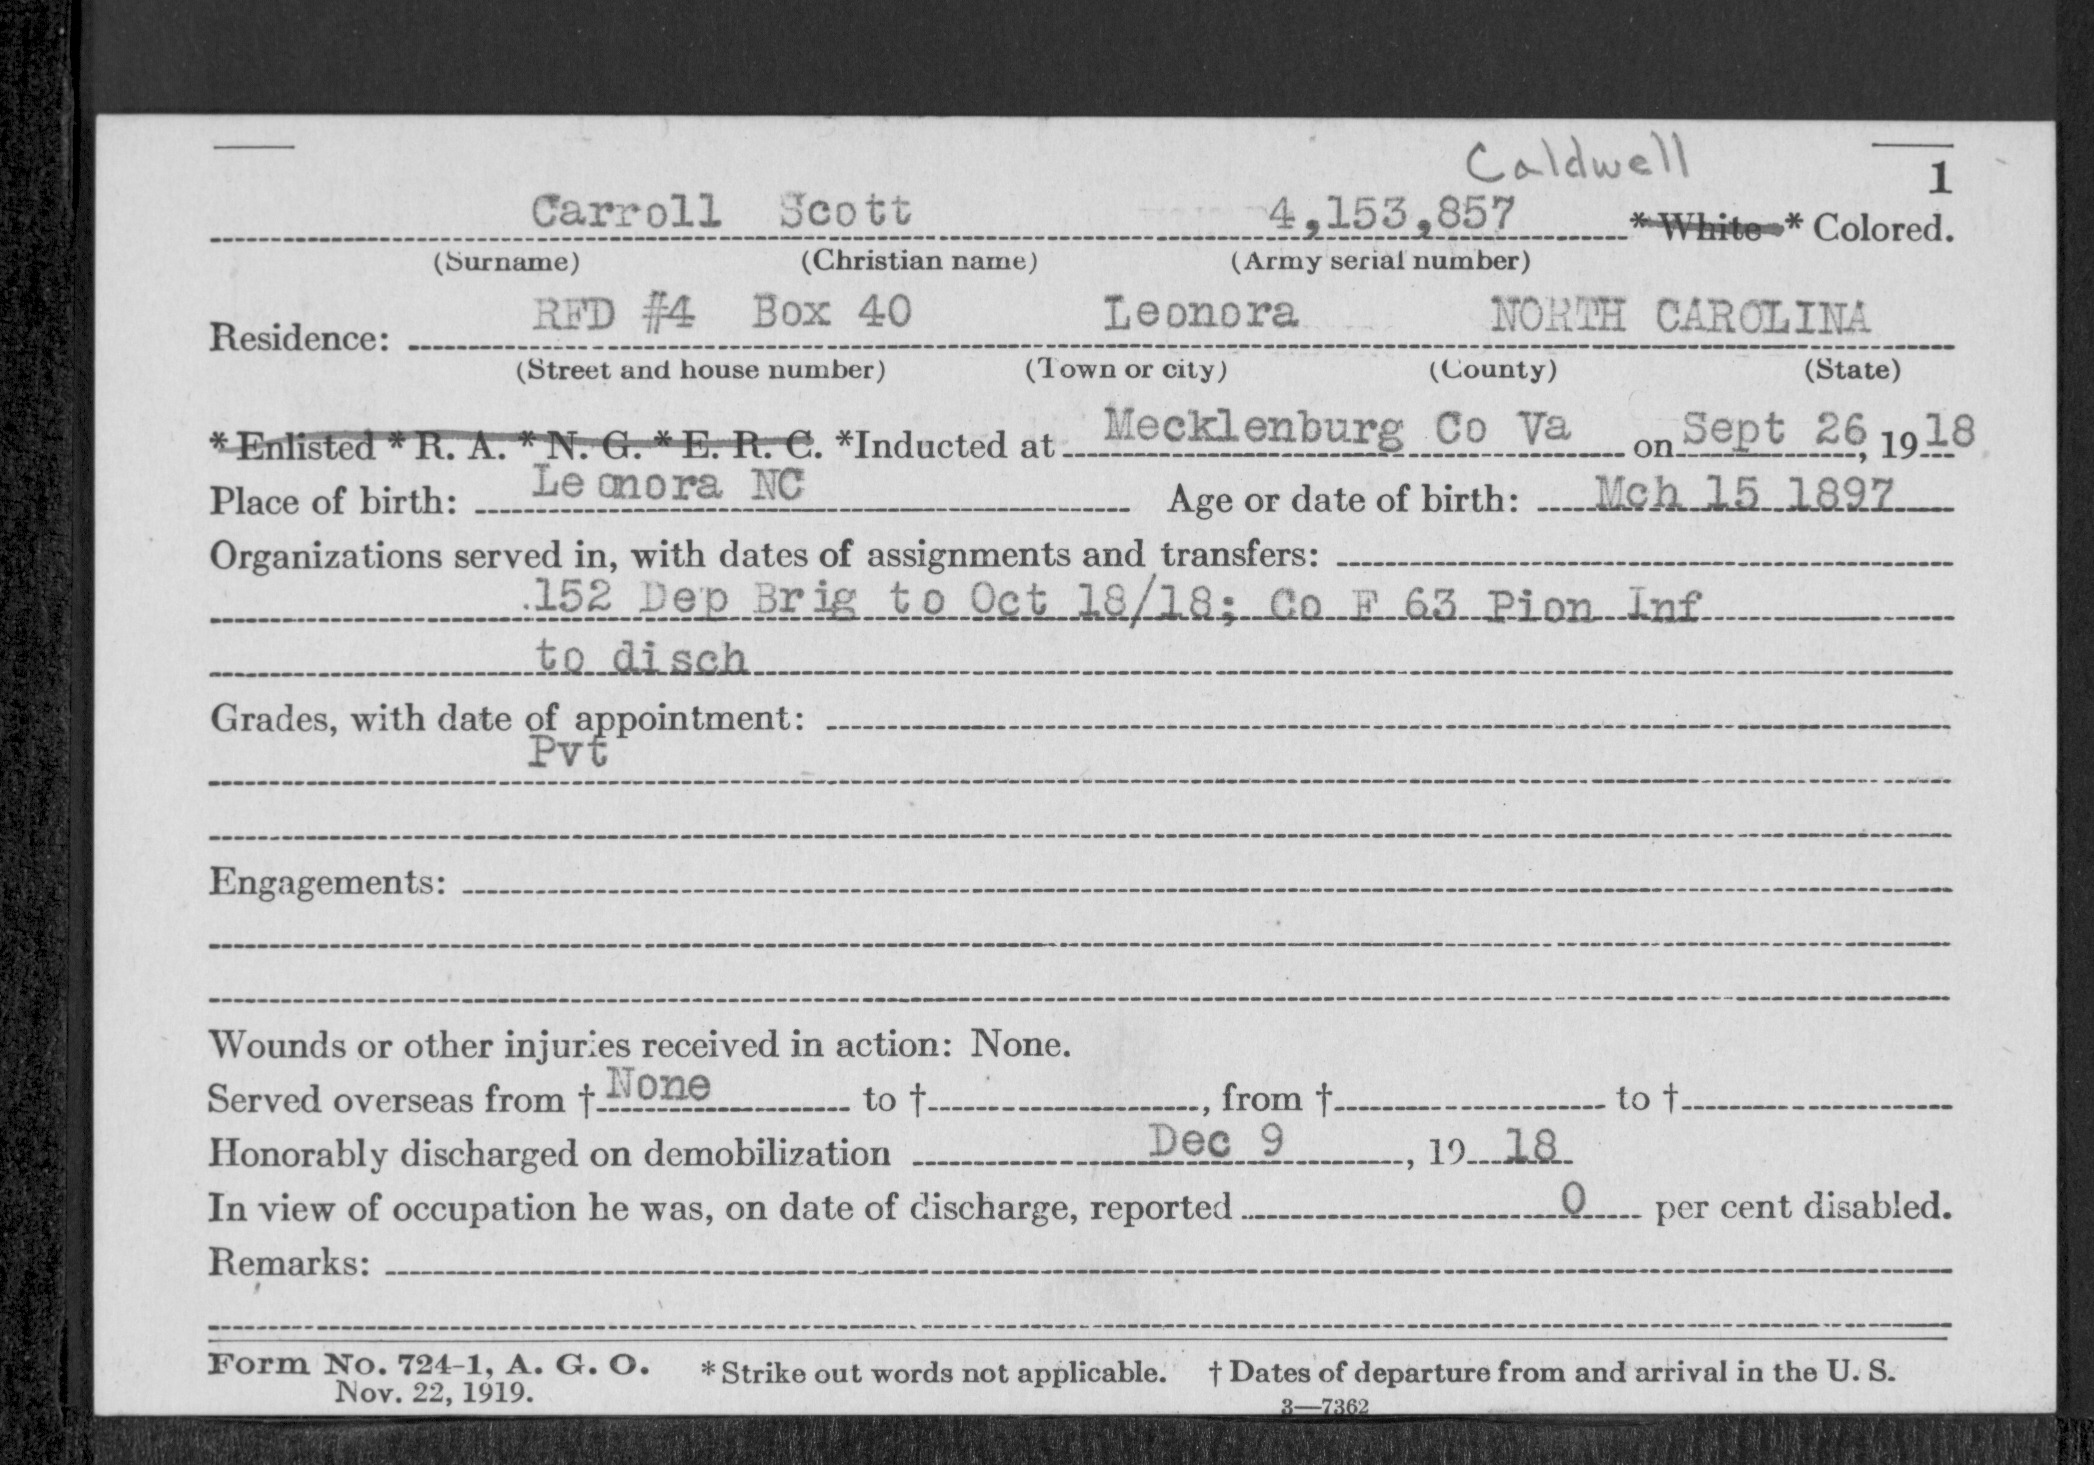 Caldwell
1
Carroll Scott 4,153,857 * White * Colored.
(Surname) (Christian name) (Army serial number)
RFD #4 Box 40 Leonora NORTH CAROLINA
Residence:
(Street and house number) (Town or city) (County) (State)
* Enlisted * R. A. * N. G. * E. R. C. *Inducted at Mecklenburg Co Va on Sept 26, 1918
Place of birth: Leonora NC Age or date of birth: Mch 15 1897
Organizations served in, with dates of assignments and transfers:
152 Dep Brig to Oct 18/18; Co F 63 Pion Inf
to disch
Grades, with date of appointment:
Pvt
Engagements:
Wounds or other injuries received in action: None.
Served overseas from † None to †, from † to †
Honorably discharged on demobilization Dec 9, 19 18
In view of occupation he was, on date of discharge, reported 0 per cent disabled.
Remarks:
Form No. 724-1, A. G. O. * Strike out words not applicable. † Dates of departure from and arrival in the U. S.
Nov. 22, 1919.
3—7362